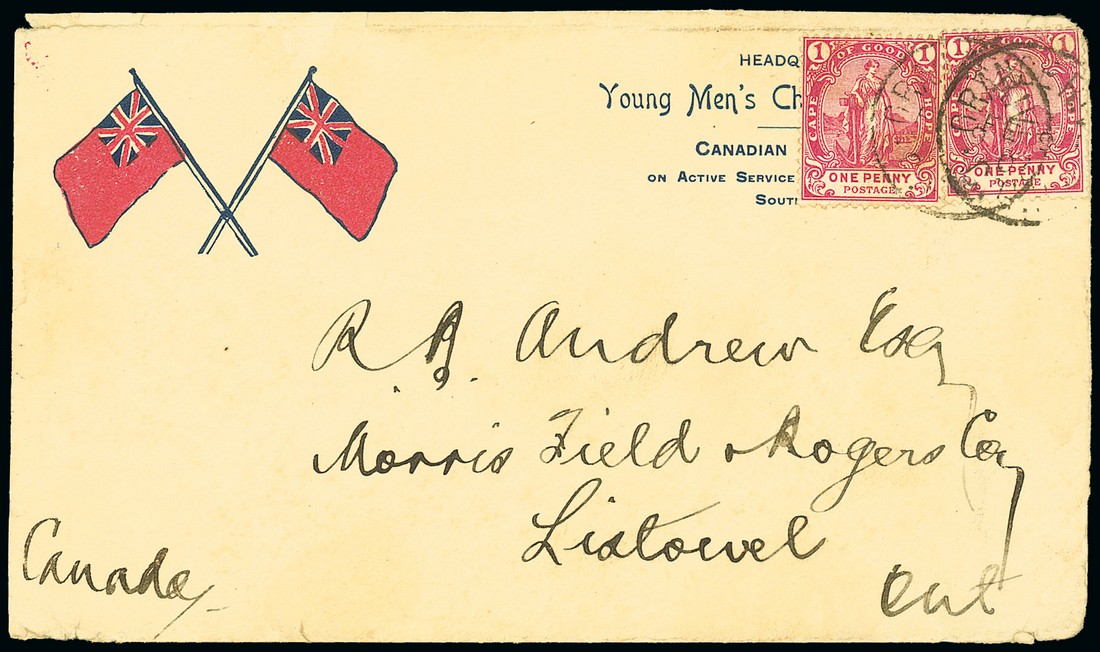 HEADQ
Young Men's Ch
CANADIAN
ON ACTIVE SERVICE
SOUT
1 OF GOOD
CAPE HOPE
ONE PENNY
POSTAGE
1 1
CAPE HOPE
ONE PENNY
POSTAGE
R A Andrew Esq
Morris Field & Rogers Co
Listowel
Ont
Canada